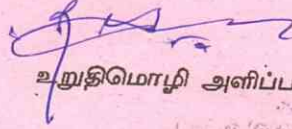 உறுதிமொழி அளிப்ப